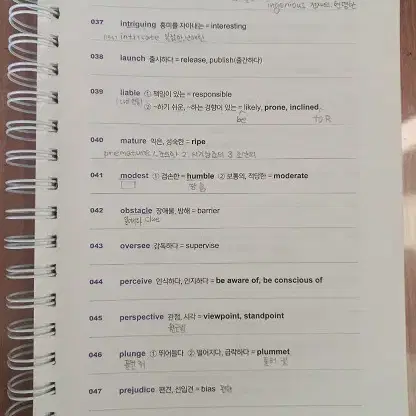 037 intriguing 흥미를 자아내는 = interesting
intricate 복잡한
038 launch 출시하다 = release, publish(출간하다)
039 liable ① 책임이 있는 = responsible
② ~하기 쉬운, ~하는 경향이 있는 = likely, prone, inclined
be to R
040 mature 익은, 성숙한 = ripe
premature
041 modest ① 겸손한 = humble ② 보통의, 적당한 = moderate
042 obstacle 장애물, 방해 = barrier
043 oversee 감독하다 = supervise
044 perceive 인식하다, 인지하다 = be aware of, be conscious of
045 perspective 관점, 시각 = viewpoint, standpoint
046 plunge ① 뛰어들다 ② 떨어지다, 급락하다 = plummet
047 prejudice 편견, 선입견 = bias 편견